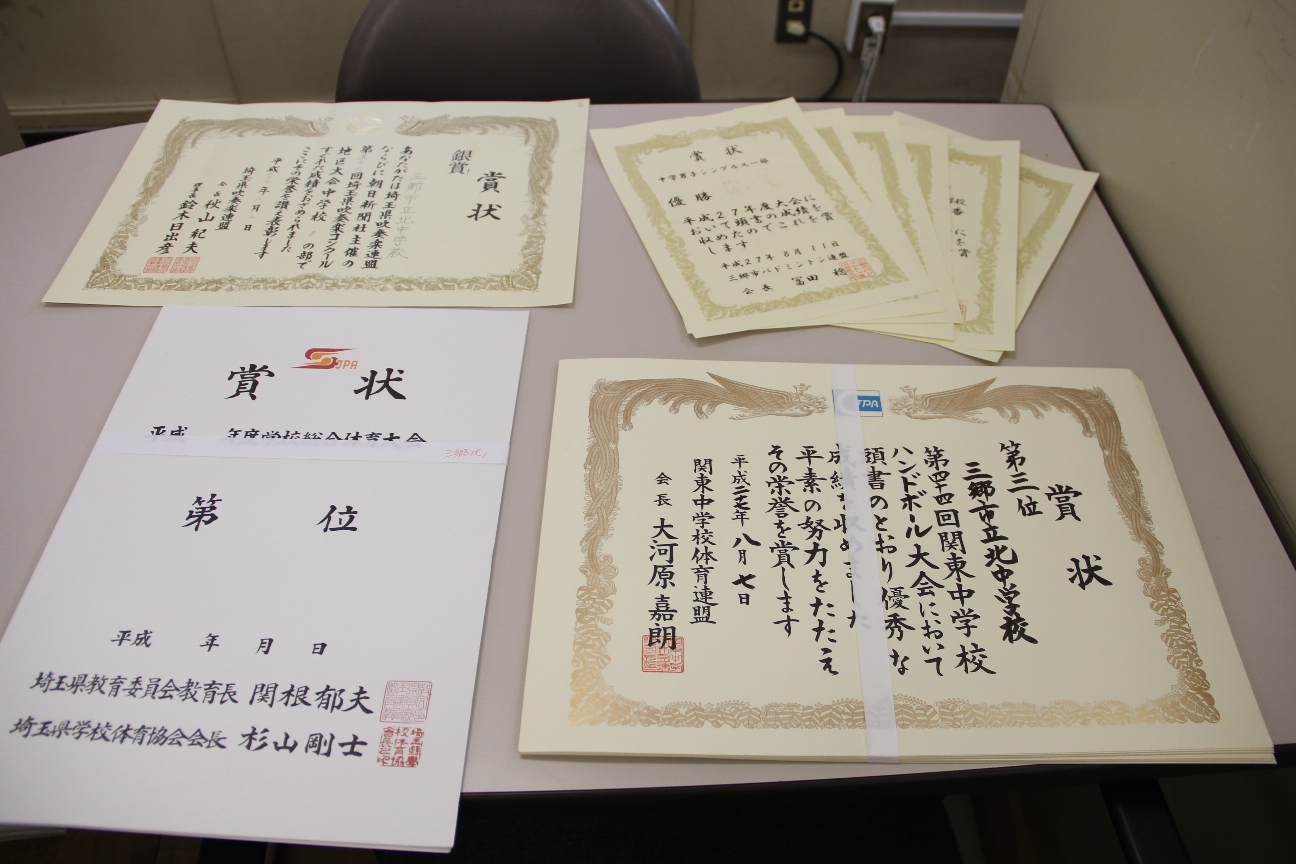 賞状
銀賞
三郷市立北中学校
あなたがたは埼玉県吹奏楽連盟
ならびに朝日新聞社主催の
回埼玉県吹奏楽コンクール
地区大会中学校 の部で
すぐれた成績をおさめられました
ここにその栄誉を讃え表彰します
平成 年 月 日
埼玉県吹奏楽連盟
会長 秋山紀夫
理事長 鈴木日出彦
賞状
中学男子シングルス一部
優勝
平成27年度大会に
おいて頭書の成績を
収めたのでこれを賞
します
平成27年8月11日
三郷市バドミントン連盟
会長 富田 稔
SJPA
賞状
平成 年度学校総合体育大会
三郷北
第 位
平成 年 月 日
埼玉県教育委員会教育長 関根郁夫
埼玉県学校体育協会会長 杉山剛士
JPA
賞状
第三位
三郷市立北中学校
第四十四回関東中学校
ハンドボール大会において
頭書のとおり優秀な
成績を収めました
平素の努力をたたえ
その栄誉を賞します
平成二十七年八月七日
関東中学校体育連盟
会長 大河原嘉朗